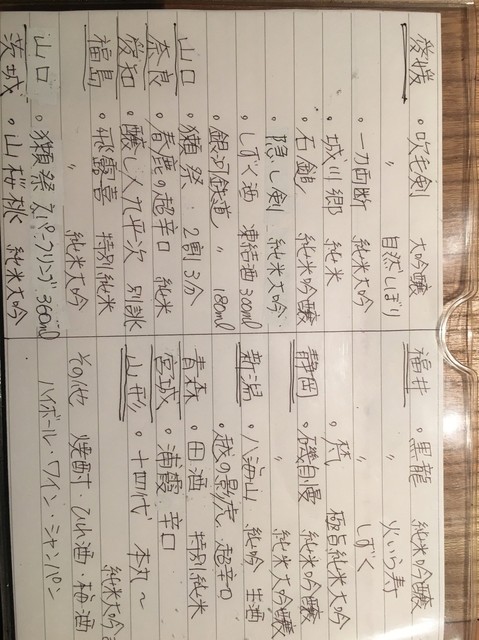 愛媛 ・吹毛剣 大吟醸
〃 自然しぼり
・一刀両断 純米大吟
・城川郷 純米
・石鎚 純米吟醸
・隠し剣 純米大吟
・しずく酒 凍結酒 300ml
・銀河鉄道 〃 180ml
山口 ・獺祭 2割3分
奈良 ・春鹿の超辛口 純米
愛知 ・醸し人九平次 別誂
福島 ・飛露喜 特別純米
〃 純米大吟
山口 ・獺祭 スパークリング 360ml
茨城 ・山桜桃 純米大吟
福井 ・黒龍 純米吟醸
〃 火いら寿
〃 しずく
・梵 極旨純米大吟
静岡 ・磯自慢 純米吟醸
〃 純米大吟醸
新潟 ・八海山 純吟 生酒
・越の影虎 超辛口
青森 ・田酒 特別純米
宮城 ・浦霞 辛口
山形 ・十四代 本丸〜
純米大吟
その他 焼酎・ひれ酒・梅酒
ハイボール・ワイン・シャンパン